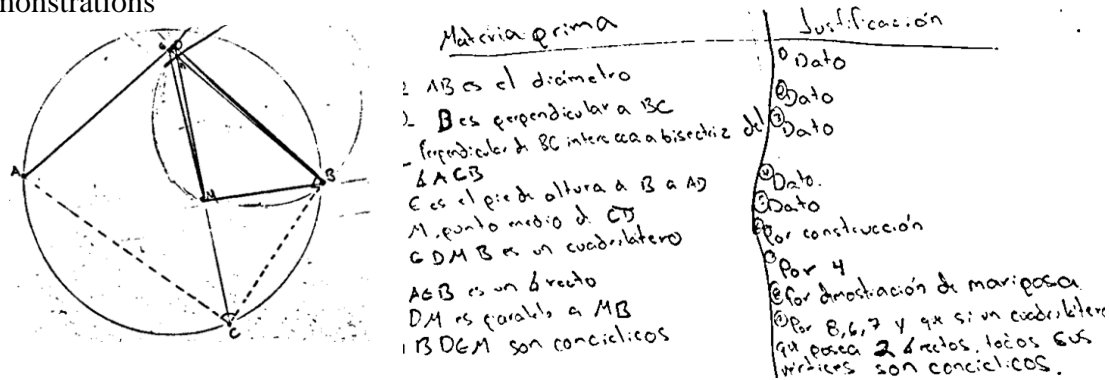 monstrations
Materia prima
Justificación
AB es el diámetro
Dato
B es perpendicular a BC
Dato
Perpendicular de BC interseca a bisectriz del
Dato
ACB
E es el pie de altura a B a AD
Dato.
M, punto medio d CD
Dato
GDMB es un cuadrilátero
Por construcción
AEB es un ∡ recto
Por 4
DM es paralelo a MB
Por demostración de mariposa
BDEM son concíclicos
Por 8, 6, 7 y qe si un cuadrilátero
qe posea 2 ∡ rectos, todos sus
vértices son concíclicos.
A
B
M
C